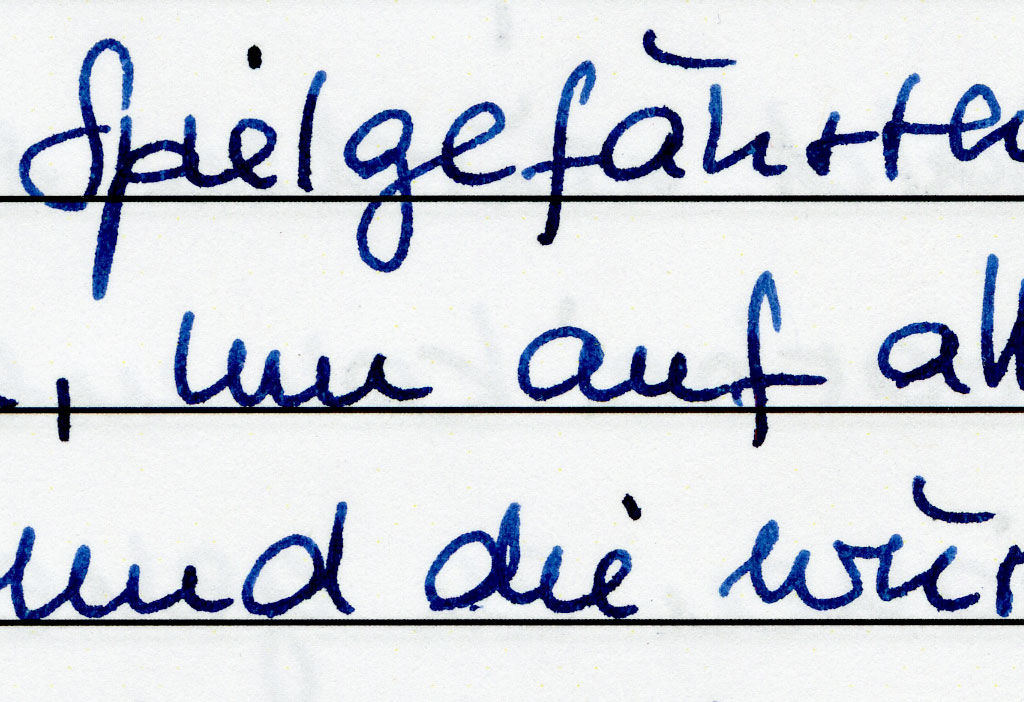 Spielgefährten
, um auf all
und die wür